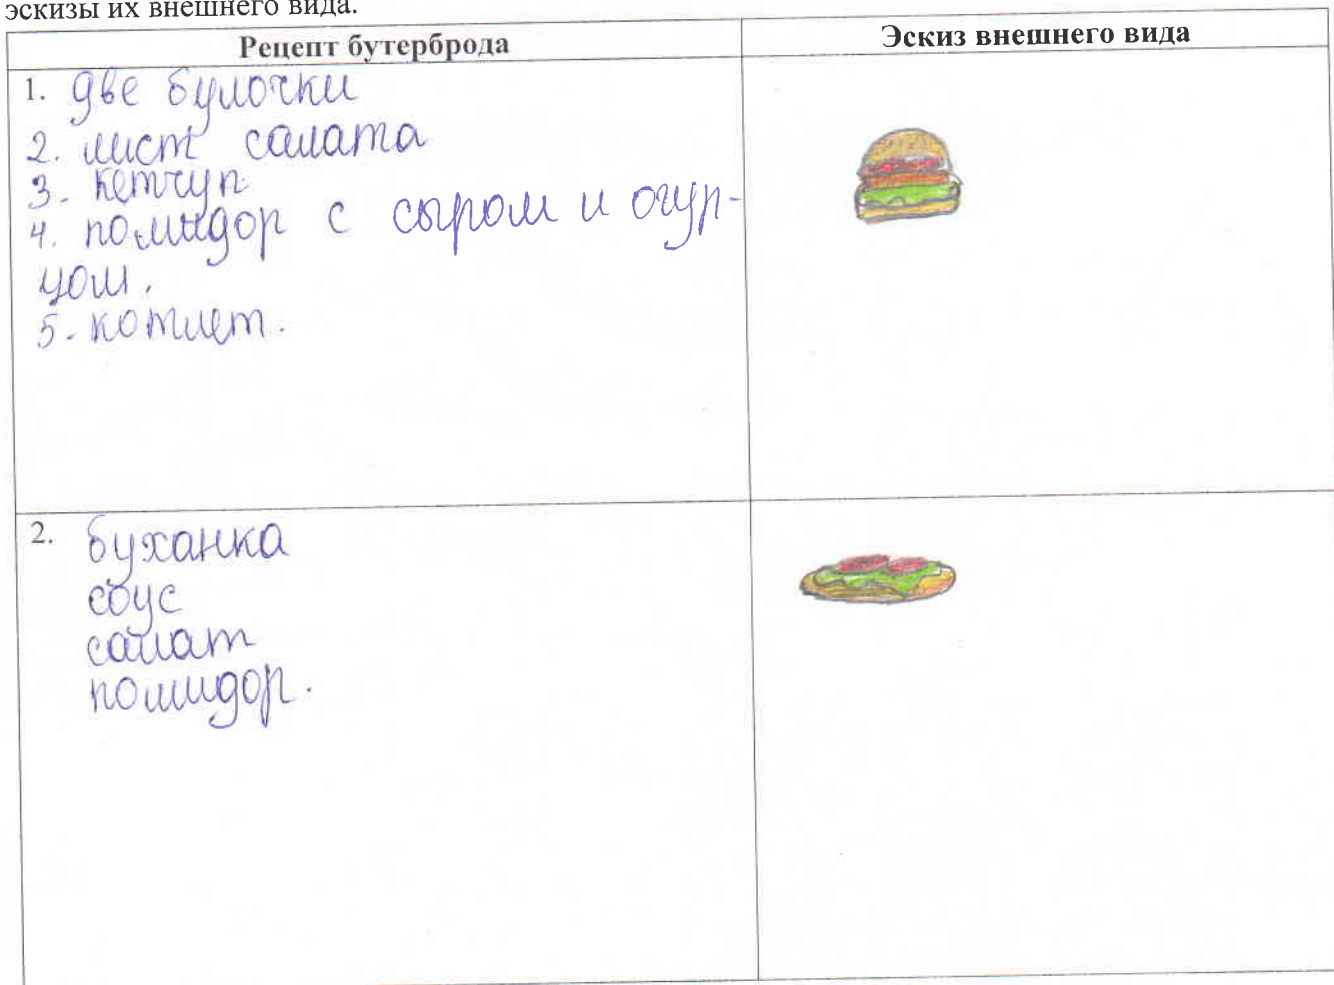 эскизы их внешнего вида.
Рецепт бутерброда
Эскиз внешнего вида
1. две булочки
2. лист салата
3. кетчуп
4. помидор с сыром и огур-
цом.
5. котлет.
2. буханка
соус
салат
помидор.